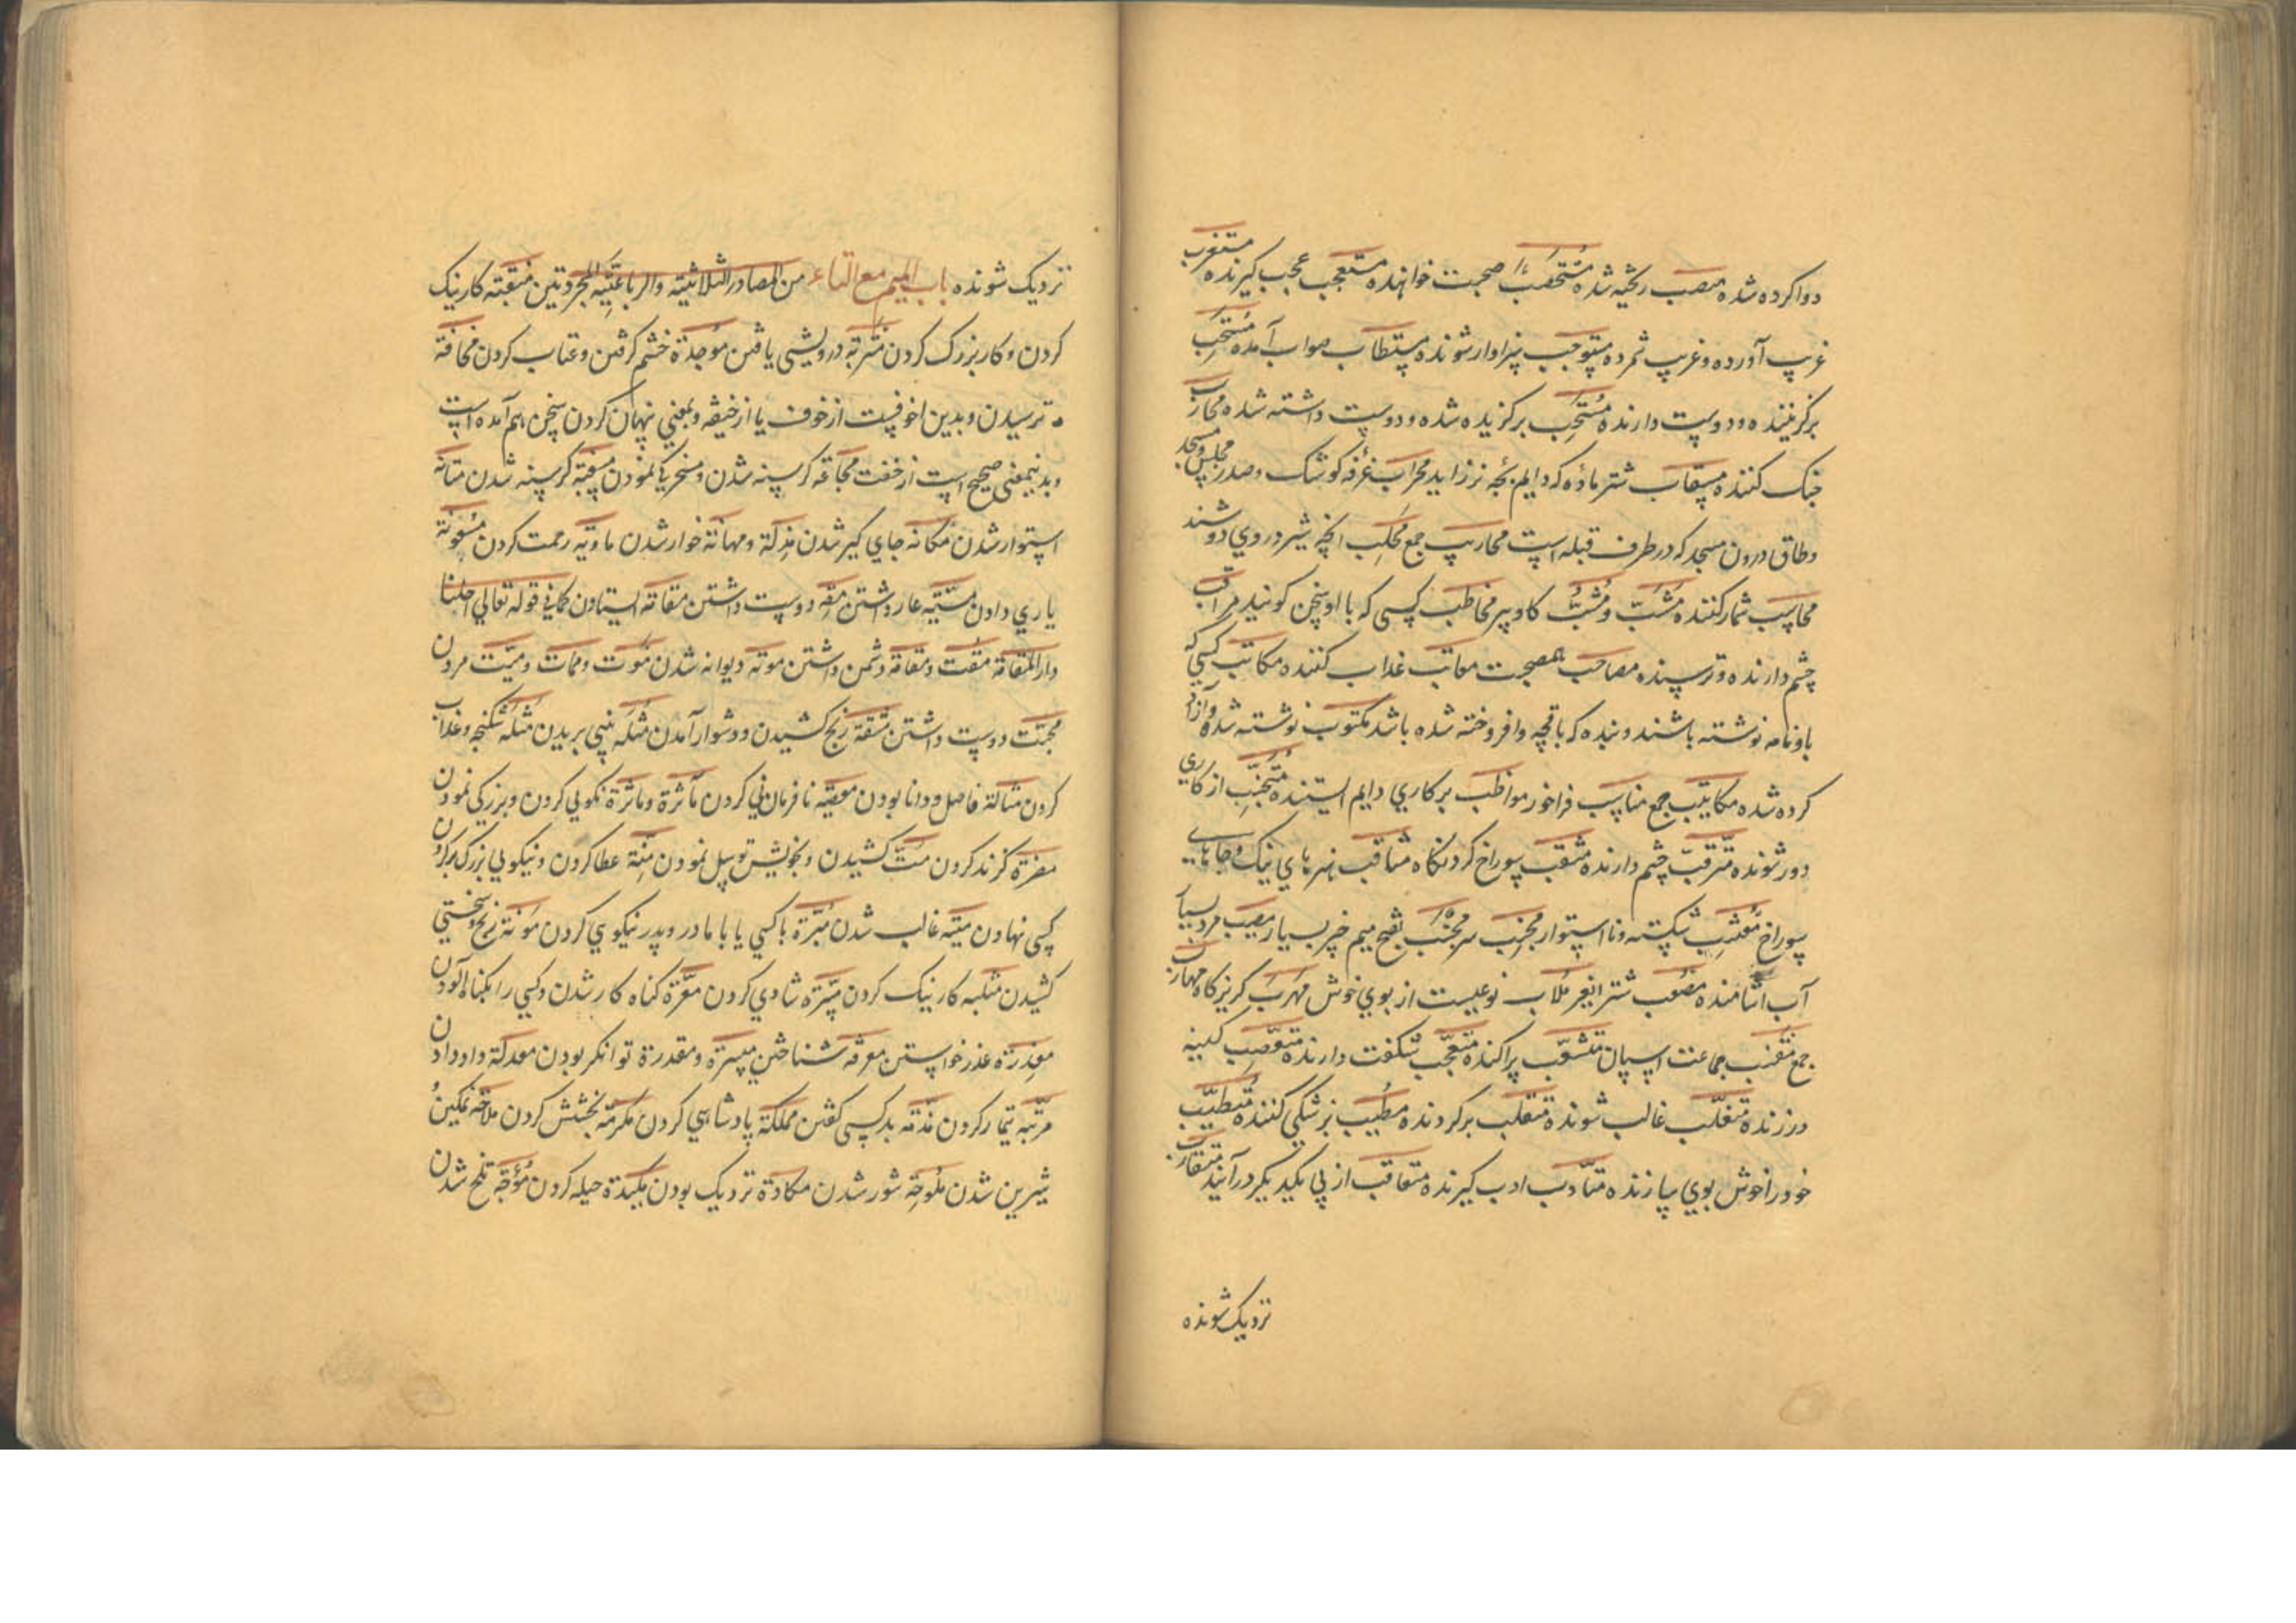 دوا کرده شده مصب ریخته شده مستصحب صحبت خواهنده مستعجب عجب گیرنده مستغرب
غریب آورده و غریب شمرده مستوجب سزاوار شونده مستطاب صواب آمده مستحب
برگزیننده و دوست دارنده مستحب برگزیده شده و دوست داشته شده محارب
جنک کننده مسقاب شتر ماده که دایم بچه نر زاید محراب غرفه کوشک و صدر مجلس و مسجد
و طاق درون مسجد که در طرف قبله است محاریب جمع محلب انچه شیر در وی دوشند
محاسب شمار کننده مشب و مشب کاو پیر مخاطب کسی که با او سخن کونید مراقب
چشم دارنده و ترسنده مصاحب همصحبت معاتب عذاب کننده مکاتب کسی که
باو نامه نوشته باشند و بنده که باقچه وافروخته شده باشد مکتوب نوشته شده و آزاد
کرده شده مکاتیب جمع مناسب فراخور مواظب بر کاری دایم ایستنده متجنب از کاری
دور شونده مترقب چشم دارنده مثقب سوراخ کردنکاه مثاقب نهرهای نیک و جاهای
سوراخ شکسته و نا استوار مجنب سر مجنب بفتح میم خیر بسیار مرد بسیار
آب آشامنده مصعب شتر ملاب نوعیست از بوی خوش مهرب کریزکاه مهارب
جمع مقنب جماعت اسپان متشعب پراکنده متعجب شکفت دارنده متعصب کینه
ورزنده متغلب غالب شونده متقلب برکردنده مطبب بزشکی کننده متطیب
خود را خوش بوی سازنده متادب ادب کیرنده متعاقب از پی یکدیکر درآینده متقارب
نزدیک شونده
نزدیک شونده باب المیم مع التاء من المصادر الثلاثیة والرباعیة المجردتین منقبة کار نیک
کردن و کار بزرک کردن متربة درویشی یافتن موجدة خشم کرفتن و عتاب کردن مخافة
ترسیدن و بدین از خوف یا از خیفه و بمعنی پنهان کردن سخن هم آمده است
و بدینمعنی صحیح است از خفت مجاعة کرسنه شدن و مسخریکی نمودن مسغبة کرسنه شدن متانة
استوار شدن مکانة جای کیر شدن مذلة و مهانة خوار شدن ماویة رحمت کردن معونة
یاری دادن عار داشتن مقة دوست داشتن مقامة ایستادن کما فی قوله تعالی احلنا
دار المقامة مقت و مقاتة دشمن داشتن موتة دیوانه شدن موت و ممات و میت مردن
محبت دوست داشتن مشقة رنج کشیدن و دشوار آمدن مثلة بینی بریدن مثلة شکنجه و عذاب
کردن مثالة فاضل و دانا بودن معصیة نافرمانی کردن مأثرة و ماثرة نکویی کردن و بزرکی نمودن
مضرة کزند کردن مت کشیدن و بخویش توسل نمودن منة عطا کردن و نیکویی بزرک بر کردن
کسی نهادن میتة غالب شدن مبرة با کسی یا با مادر و پدر نیکوی کردن مؤنة رنج و سختی
کشیدن کار نیک کردن مسرة شادی کردن معرة کناه کار شدن و کسی را بکناه آلودن
معذرة عذر خواستن معرفة شناختن میسرة و مقدرة توانکر بودن معدلة داد دادن
مرتبة تیمار کردن مذقة بد کسی کفتن مملکة پادشاهی کردن مکرمة بخشش کردن ملاحة نمکین
شیرین شدن ملوحة شور شدن مکادة نزدیک بودن مکیدة حیله کردن تلخ شدن